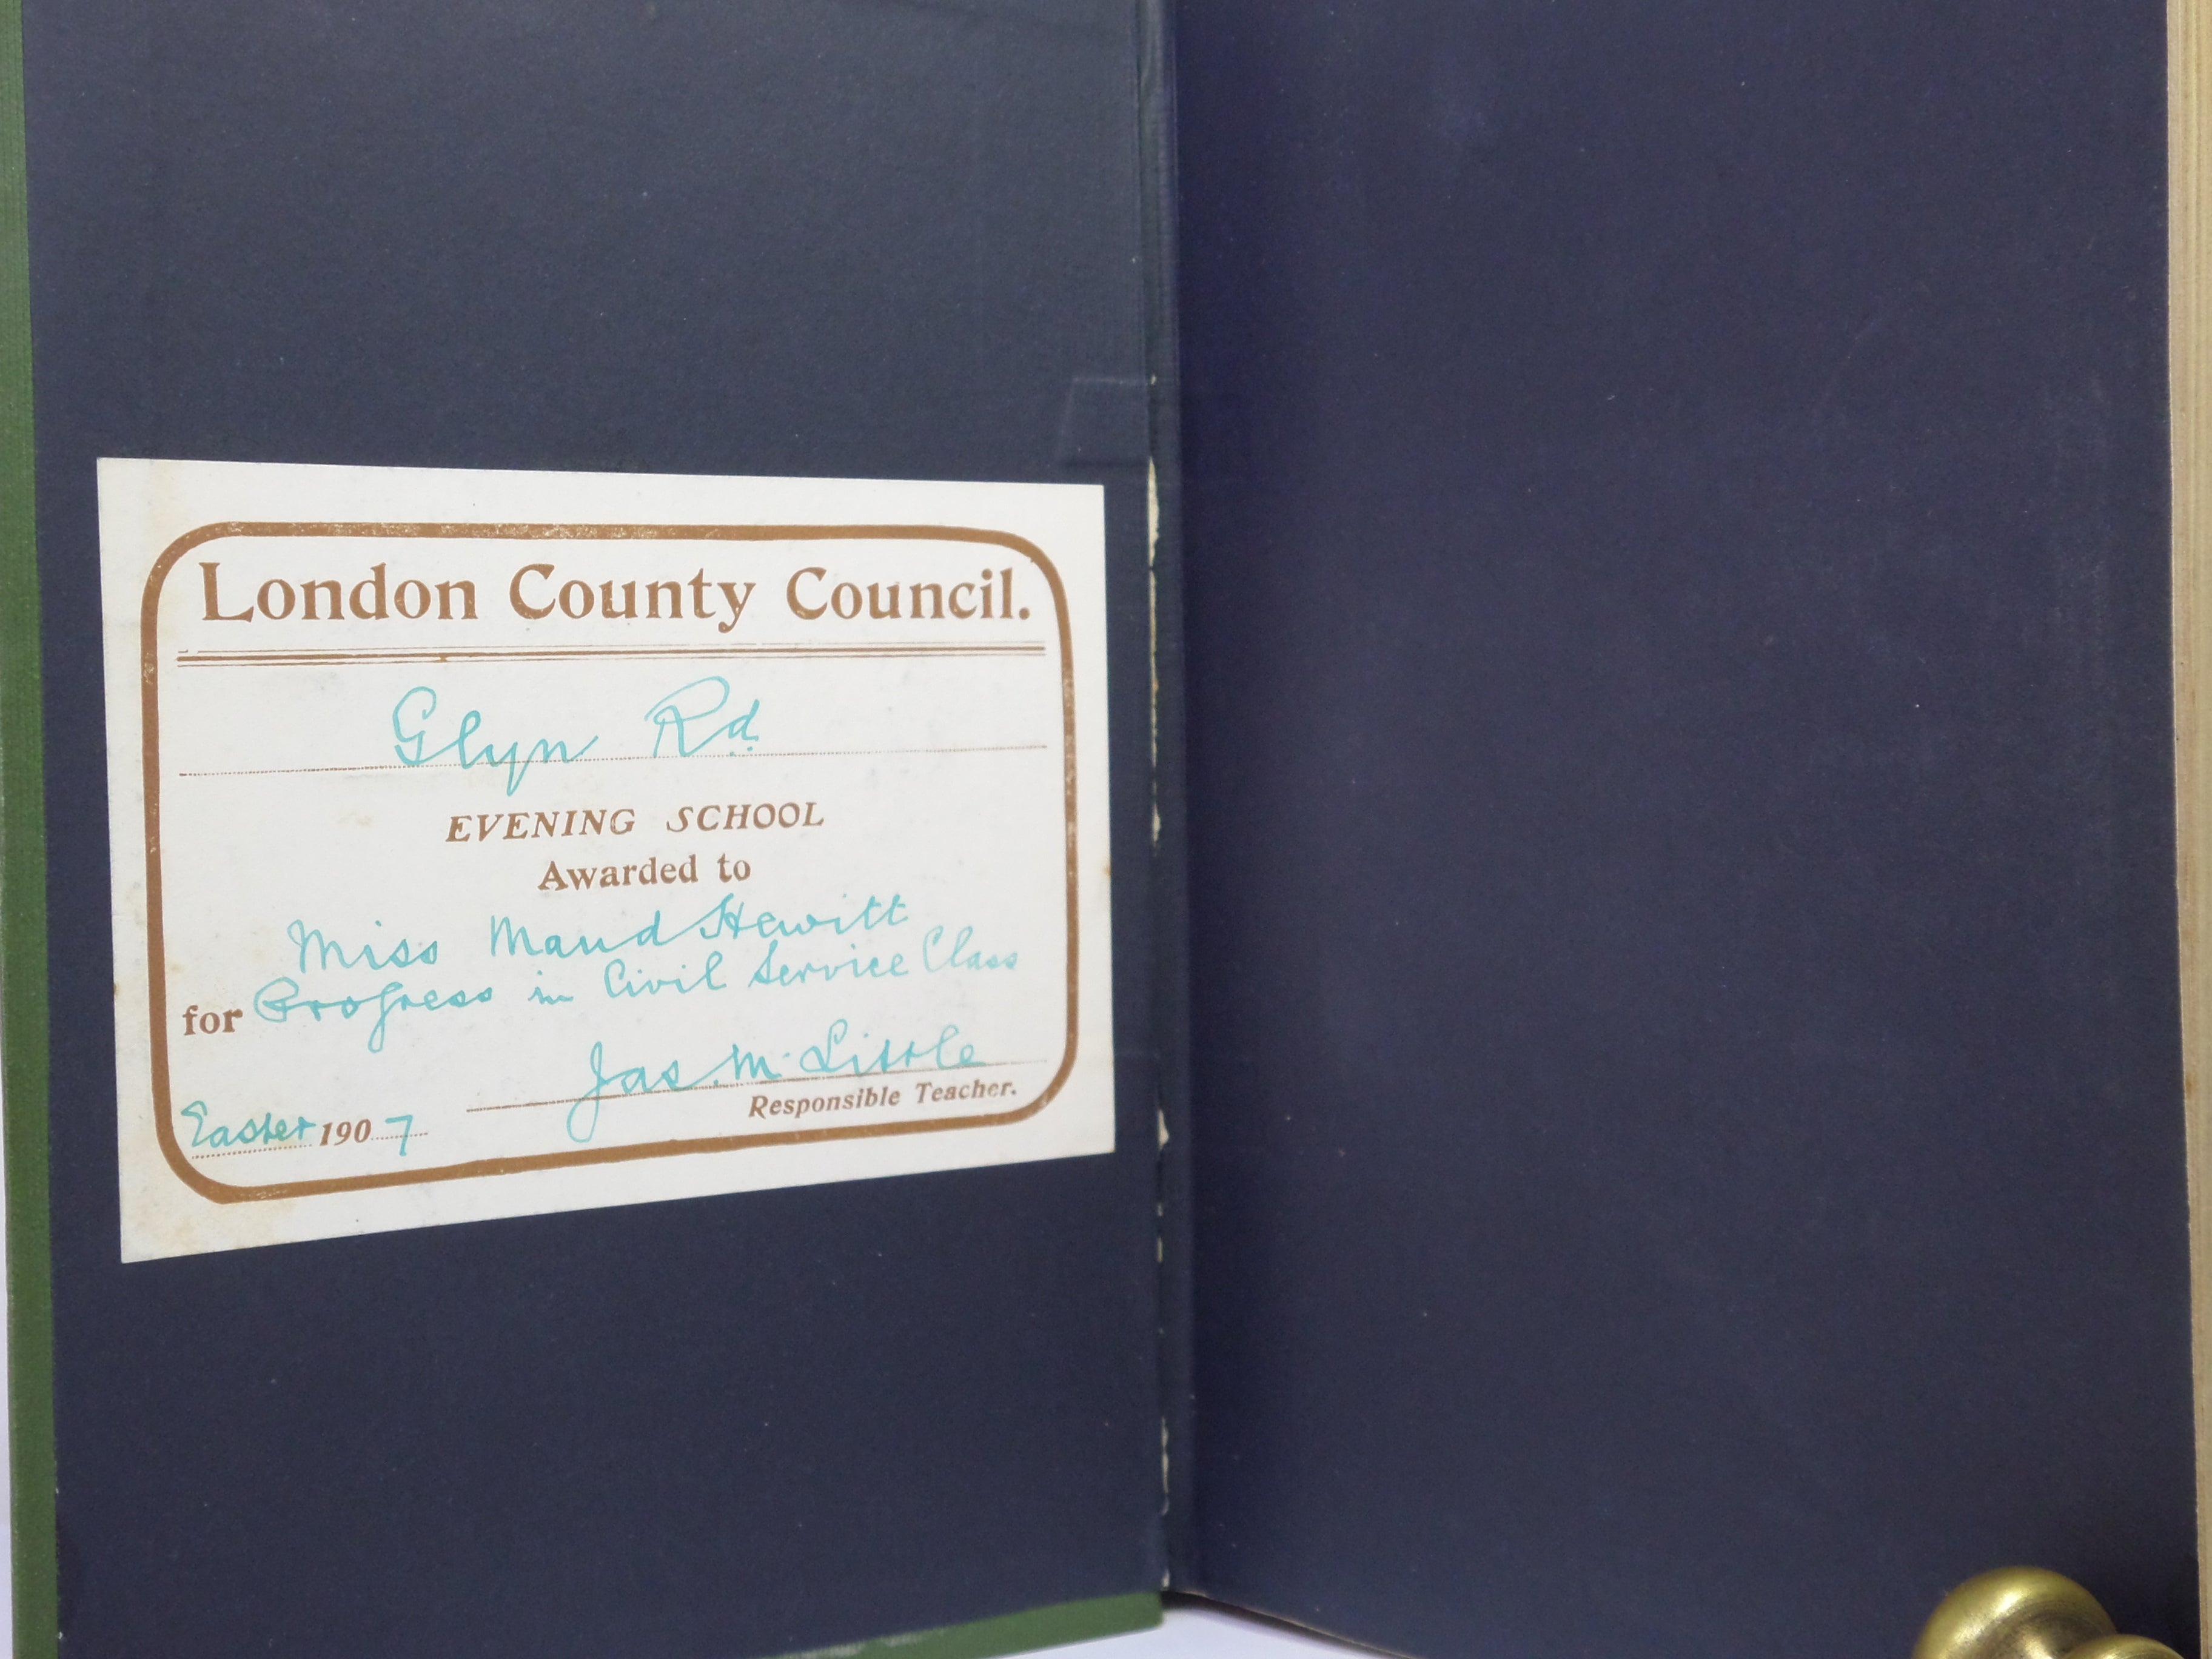 London County Council.
Glyn Rd.
EVENING SCHOOL
Awarded to
Miss Maud Hewitt
for Progress in Civil Service Class
Jas. M. Little
Responsible Teacher.
Easter 1907